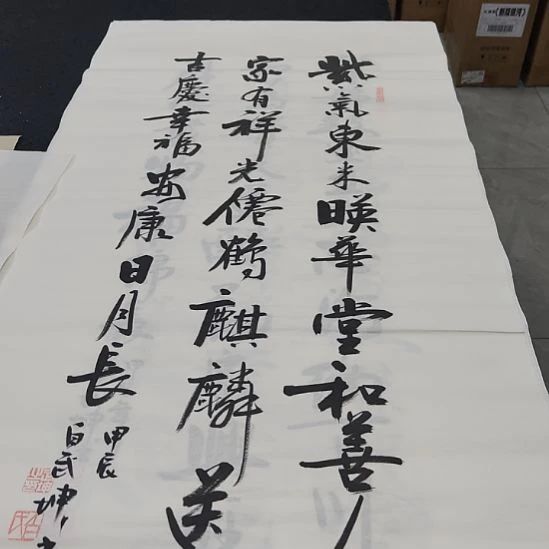 紫氣東来暎華堂和善人
家有祥光僊鶴麒麟送
吉慶幸福安康日月長
甲辰
白民坤